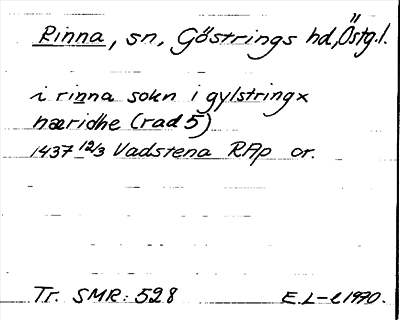 Rinna, sn, Göstrings hd, Östg.l.
i rinna sokn i gylstringx
hæridhe (rad 5)
1437 12/3 Vadstena RAp or.
Tr. SMR: 528 E.L-l 1970.